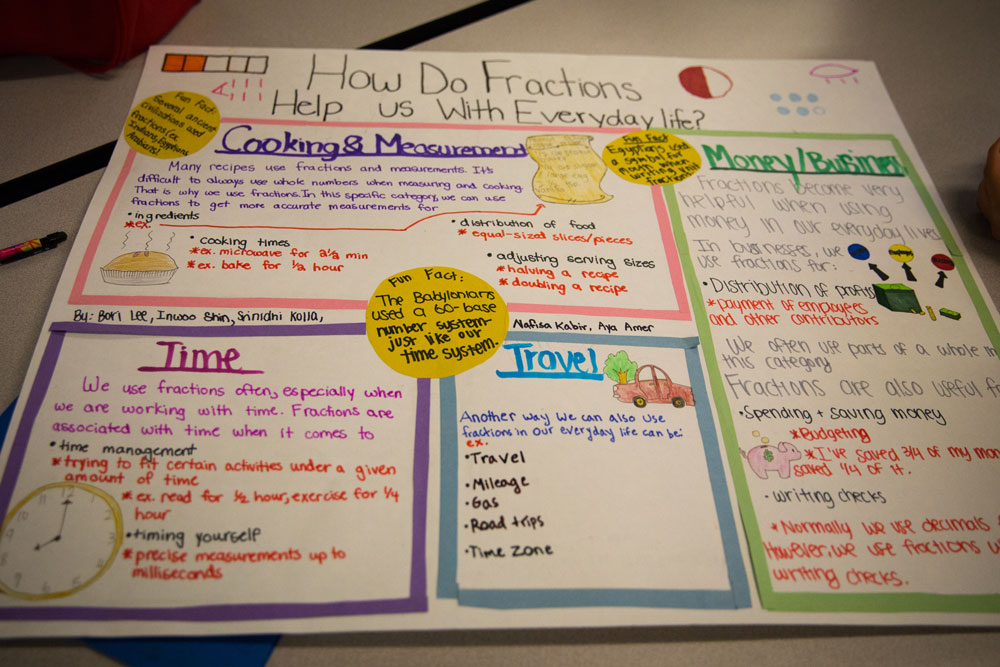 How Do Fractions
Help us With Everyday life?
Fun Fact:
Several ancient
civilizations used
fractions (ex.
Indians, Egyptians,
Arabians)
Cooking & Measurement
Many recipes use fractions and measurements. It's
difficult to always use whole numbers when measuring and cooking.
That is why we use fractions. In this specific category, we can use
fractions to get more accurate measurements for
•ingredients
*ex.
•cooking times
*ex. microwave for 2 1/2 min
*ex. bake for 1/2 hour
•distribution of food
*equal-sized slices/pieces
•adjusting serving sizes
*halving a recipe
*doubling a recipe
Fun Fact
Egyptians used
a symbol for
writing
fractions
By: Bori Lee, Inwoo Shin, Srinidhi Kolla,
Nafisa Kabir, Aya Amer
Fun Fact:
The Babylonians
used a 60-base
number system-
just like our
time system.
Time
We use fractions often, especially when
we are working with time. Fractions are
associated with time when it comes to
•time management
*trying to fit certain activities under a given
amount of time
*ex. read for 1/2 hour, exercise for 1/4
hour
•timing yourself
*precise measurements up to
milliseconds
12
Travel
Another way we can also use
fractions in our everyday life can be:
ex.
•Travel
•Mileage
•Gas
•Road trips
•Time zone
Money/Business
Fractions become very
helpful when using
money in our everyday lives
In businesses, we
use fractions for:
•Distribution of profits
*payment of employees
and other contributors
We often use parts of a whole in
this category
Fractions are also useful
•Spending + saving money
*Budgeting
*I've saved 3/4 of my
saved 1/4 of it.
•writing checks
*Normally we use decimals
However, we use fractions
writing checks.